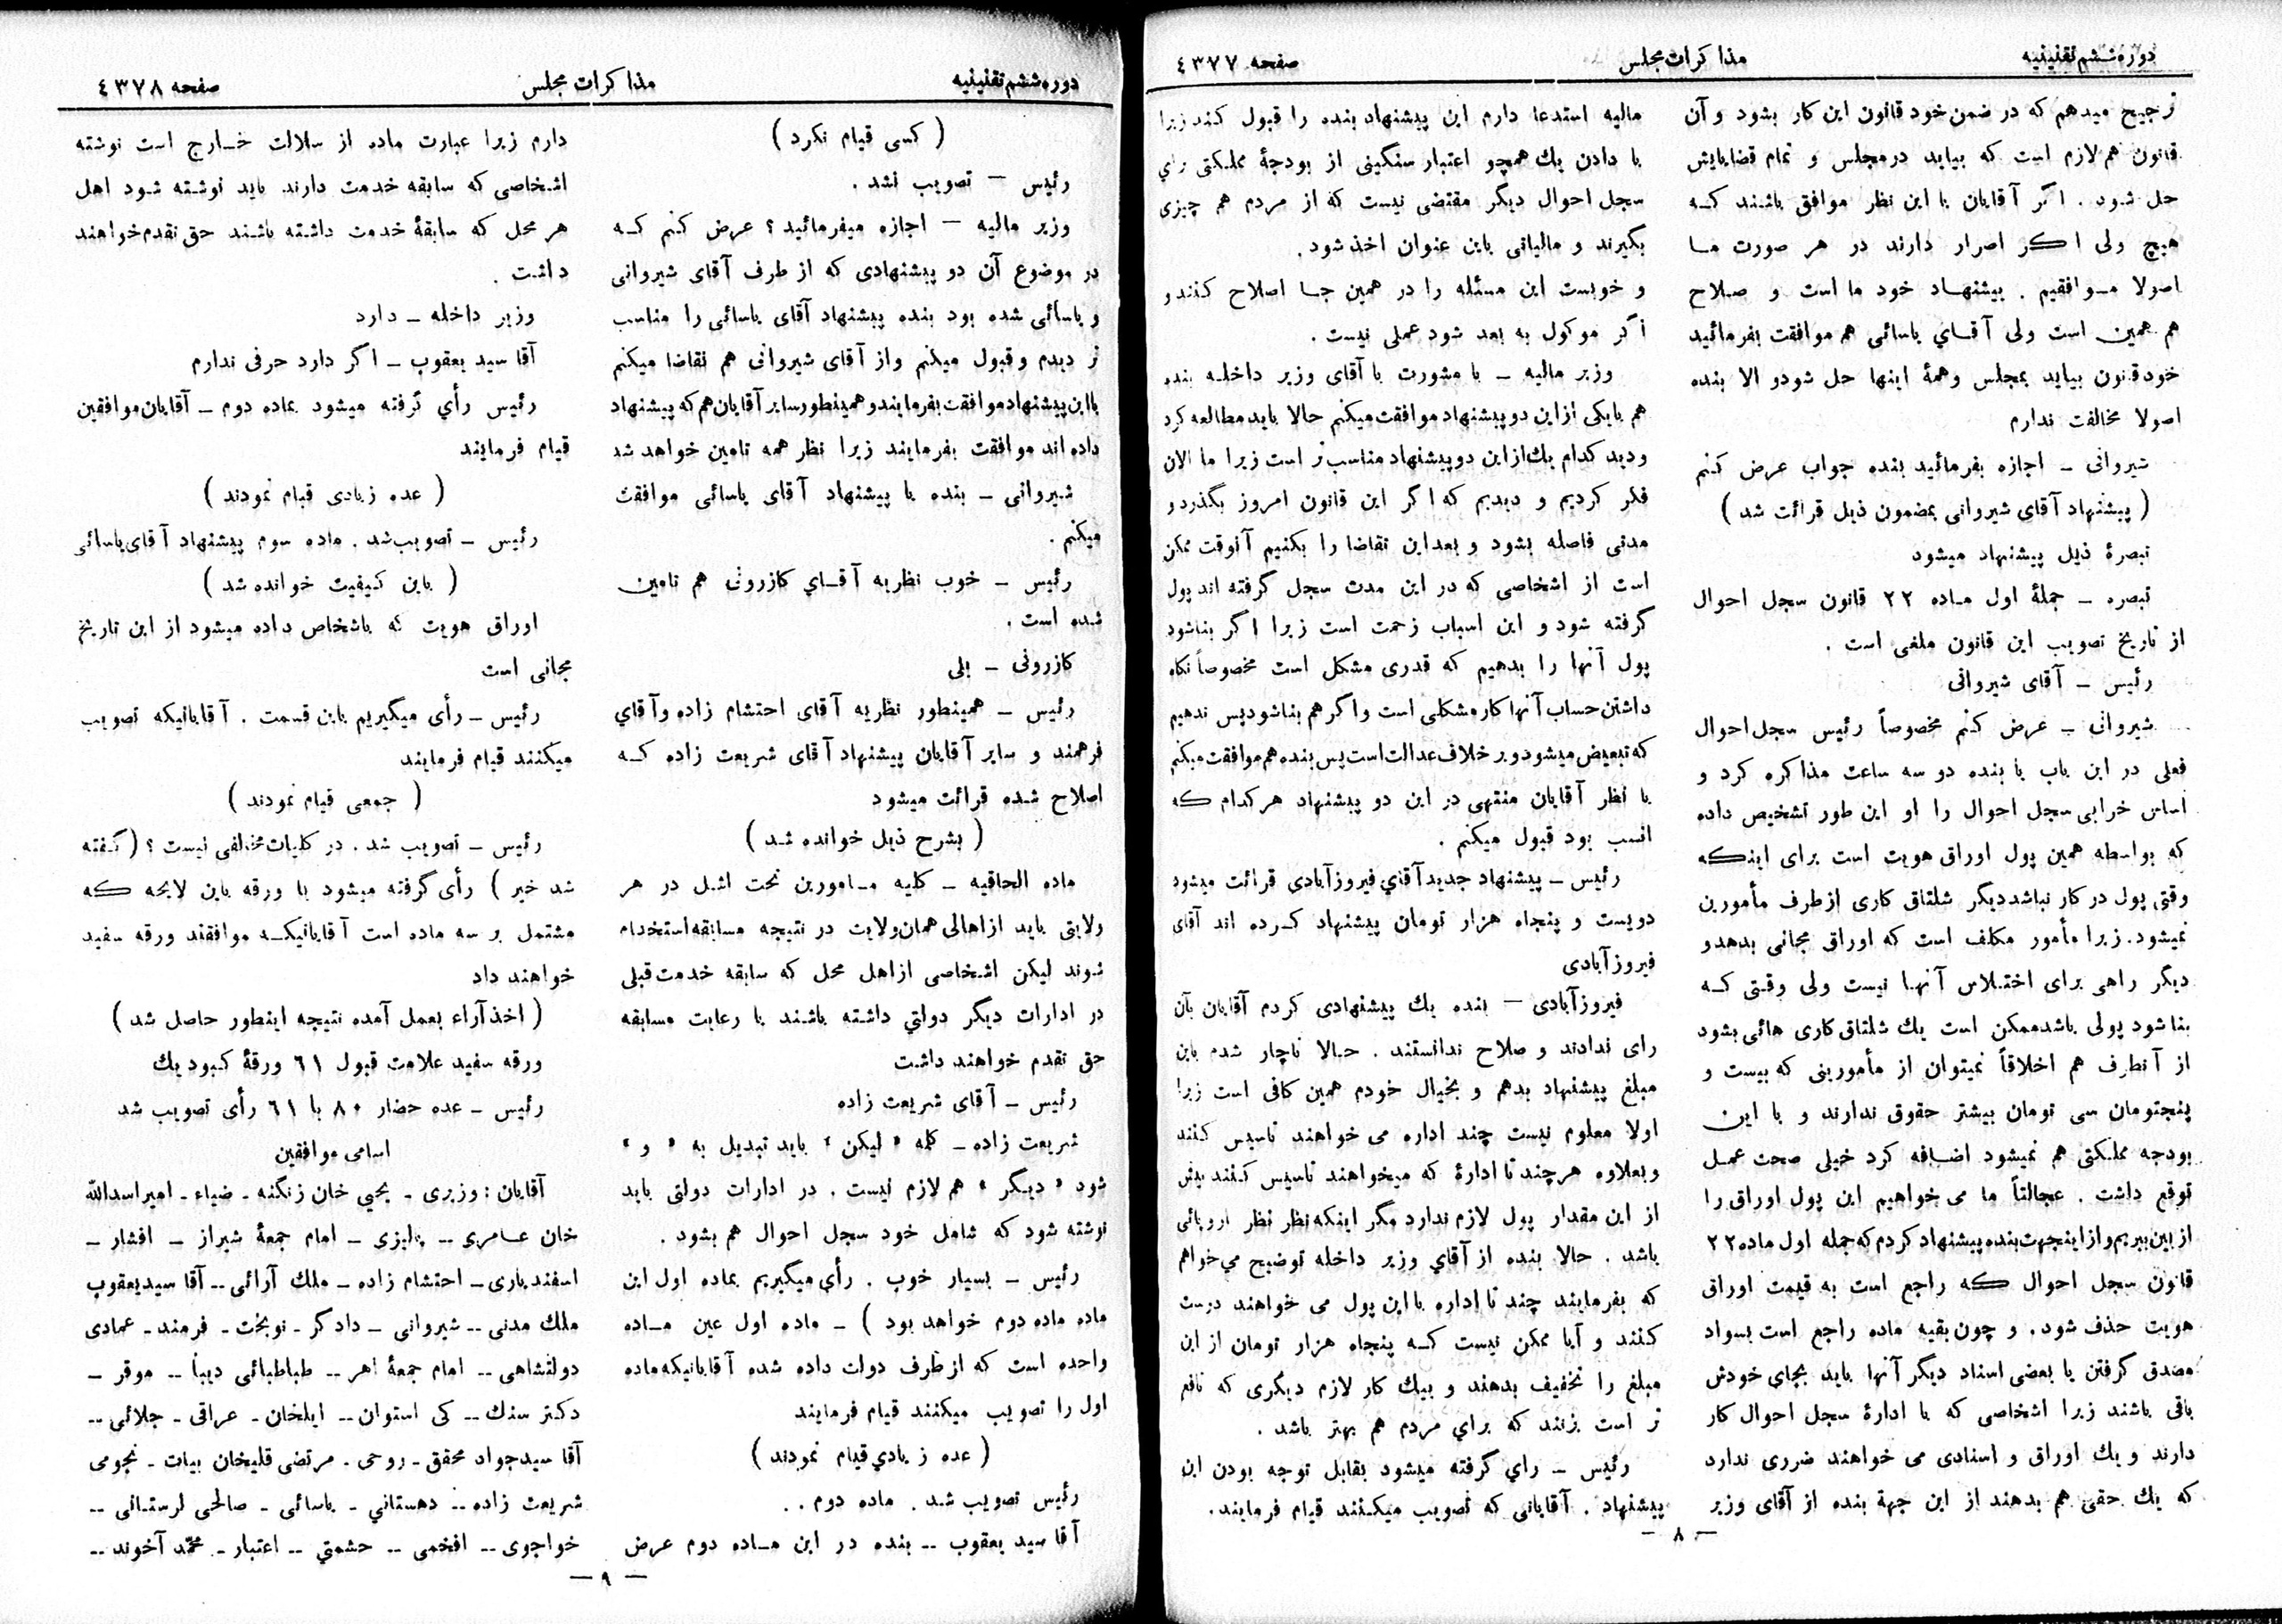 دوره ششم تقنینیه
مذاکرات مجلس
صفحه ٤٣٧٧
ترجیح میدهم که در ضمن خود قانون این کار بشود و آن
قانون هم لازم است که بیاید در مجلس و تمام قضایایش
حل شود . اگر آقایان با این نظر موافق باشند که
هیچ ولی اگر اصرار دارند در هر صورت ما
اصولا موافقیم . پیشنهاد خود ما است و صلاح
هم همین است ولی آقای یاسائی هم موافقت بفرمائید
خود قانون بیاید بمجلس و همهٔ اینها حل شود و الا بنده
اصولا مخالفت ندارم
شیروانی – اجازه بفرمائید بنده جواب عرض کنم
( پیشنهاد آقای شیروانی بمضمون ذیل قرائت شد )
تبصرهٔ ذیل پیشنهاد میشود
تبصره – جملهٔ اول ماده ۲۲ قانون سجل احوال
از تاریخ تصویب این قانون ملغی است .
رئیس – آقای شیروانی
شیروانی – عرض کنم مخصوصاً رئیس سجل احوال
فعلی در این باب با بنده دو سه ساعت مذاکره کرد و
اساس خرابی سجل احوال را او این طور تشخیص داده
که بواسطه همین پول اوراق هویت است برای اینکه
وقتی پول در کار نباشد دیگر شلتاق کاری از طرف مأمورین
نمیشود. زیرا مأمور مکلف است که اوراق مجانی بدهد و
دیگر راهی برای اختلاس آنها نیست ولی وقتی که
بنا شود پولی باشد ممکن است یك شلتاق کاری هائی بشود
از آنطرف هم اخلاقاً نمیتوان از مأمورینی که بیست و
پنجتومان سی تومان بیشتر حقوق ندارند و با این
بودجه مملکتی هم نمیشود اضافه کرد خیلی صحت عمل
توقع داشت . عجالتاً ما می خواهیم این پول اوراق را
از بین ببریم و از اینجهت بنده پیشنهاد کردم که جمله اول ماده ۲۲
قانون سجل احوال که راجع است به قیمت اوراق
هویت حذف شود. و چون بقیه ماده راجع است بسواد
مصدق گرفتن یا بعضی اسناد دیگر آنها باید بجای خودش
باقی باشند زیرا اشخاصی که با ادارهٔ سجل احوال کار
دارند و یك اوراق و اسنادی می خواهند ضرری ندارد
که یك حقی هم بدهند از این جهة بنده از آقای وزیر
مالیه استدعا دارم این پیشنهاد بنده را قبول کنند زیرا
با دادن یك همچو اعتبار سنگینی از بودجهٔ مملکتی برای
سجل احوال دیگر مقتضی نیست که از مردم هم چیزی
بگیرند و مالیاتی باین عنوان اخذ شود .
و خوبست این مسئله را در همین جا اصلاح کنند و
اگر موکول به بعد شود عملی نیست .
وزیر مالیه – با مشورت با آقای وزیر داخله بنده
هم با یکی از این دو پیشنهاد موافقت میکنم حالا باید مطالعه کرد
و دید کدام یك از این دو پیشنهاد مناسب تر است زیرا ما الان
فکر کردیم و دیدیم که اگر این قانون امروز بگذرد و
مدتی فاصله بشود و بعد این تقاضا را بکنیم آنوقت ممکن
است از اشخاصی که در این مدت سجل گرفته اند پول
گرفته شود و این اسباب زحمت است زیرا اگر بنا شود
پول آنها را بدهیم که قدری مشکل است مخصوصاً نگاه
داشتن حساب آنها کار مشکلی است و اگر هم بنا شود پس ندهیم
که تبعیض میشود و بر خلاف عدالت است پس بنده هم موافقت میکنم
با نظر آقایان منتهی در این دو پیشنهاد هر کدام که
انسب بود قبول میکنم .
رئیس – پیشنهاد جدید آقای فیروزآبادی قرائت میشود
دویست و پنجاه هزار تومان پیشنهاد کرده اند آقای
فیروزآبادی
فیروزآبادی – بنده یك پیشنهادی کردم آقایان بآن
رای ندادند و صلاح ندانستند . حالا ناچار شدم باین
مبلغ پیشنهاد بدهم و بخیال خودم همین کافی است زیرا
اولا معلوم نیست چند اداره می خواهند تاسیس کنند
و بعلاوه هر چند تا ادارهٔ که میخواهند تاسیس کنند بیش
از این مقدار پول لازم ندارد مگر اینکه نظر نظر اروپائی
باشد . حالا بنده از آقای وزیر داخله توضیح می خواهم
که بفرمایند چند تا اداره با این پول می خواهند درست
کنند و آیا ممکن نیست که پنجاه هزار تومان از این
مبلغ را تخفیف بدهند و بیك کار لازم دیگری که نافع
تر است بزنند که برای مردم هم بهتر باشد .
رئیس – رای گرفته میشود بقابل توجه بودن این
پیشنهاد . آقایانی که تصویب میکنند قیام فرمایند .
— ۸ —
دوره ششم تقنینیه
مذاکرات مجلس
صفحه ٤٣٧٨
( کسی قیام نکرد )
رئیس – تصویب نشد .
وزیر مالیه – اجازه میفرمائید ؟ عرض کنم که
در موضوع آن دو پیشنهادی که از طرف آقای شیروانی
و یاسائی شده بود بنده پیشنهاد آقای یاسائی را مناسب
تر دیدم و قبول میکنم و از آقای شیروانی هم تقاضا میکنم
با این پیشنهاد موافقت بفرمایند و همینطور سایر آقایان هم که پیشنهاد
داده اند موافقت بفرمایند زیرا نظر همه تامین خواهد شد
شیروانی – بنده با پیشنهاد آقای یاسائی موافقت
میکنم .
رئیس – خوب نظریه آقای کازرونی هم تامین
شده است .
کازرونی – بلی
رئیس – همینطور نظریه آقای احتشام زاده و آقای
فرهمند و سایر آقایان پیشنهاد آقای شریعت زاده که
اصلاح شده قرائت میشود
( بشرح ذیل خوانده شد )
ماده الحاقیه – کلیه مامورین تحت اشل در هر
ولایتی باید از اهالی همان ولایت در نتیجه مسابقه استخدام
شوند لیکن اشخاصی از اهل محل که سابقه خدمت قبلی
در ادارات دیگر دولتی داشته باشند با رعایت مسابقه
حق تقدم خواهند داشت
رئیس – آقای شریعت زاده
شریعت زاده – کلمه « لیکن » باید تبدیل به « و »
شود « دیگر » هم لازم نیست . در ادارات دولتی باید
نوشته شود که شامل خود سجل احوال هم بشود .
رئیس – بسیار خوب . رأی میگیریم بماده اول این
ماده ماده دوم خواهد بود ) – ماده اول عین ماده
واحده است که از طرف دولت داده شده آقایانیکه ماده
اول را تصویب میکنند قیام فرمایند
( عده زیادی قیام نمودند )
رئیس تصویب شد . ماده دوم . .
آقا سید یعقوب – بنده در این ماده دوم عرض
دارم زیرا عبارت ماده از سلالت خارج است نوشته
اشخاصی که سابقه خدمت دارند باید نوشته شود اهل
هر محل که سابقهٔ خدمت داشته باشند حق تقدم خواهند
داشت .
وزیر داخله – دارد
آقا سید یعقوب – اگر دارد حرفی ندارم
رئیس رأی گرفته میشود بماده دوم – آقایان موافقین
قیام فرمایند
( عده زیادی قیام نمودند )
رئیس – تصویب شد . ماده سوم پیشنهاد آقای یاسائی
( باین کیفیت خوانده شد )
اوراق هویت که باشخاص داده میشود از این تاریخ
مجانی است
رئیس – رأی میگیریم باین قسمت . آقایانیکه تصویب
میکنند قیام فرمایند
( جمعی قیام نمودند )
رئیس – تصویب شد . در کلیات مخالفی نیست ؟ ( گفته
شد خیر ) رأی گرفته میشود با ورقه باین لایحه که
مشتمل بر سه ماده است آقایانیکه موافقند ورقه سفید
خواهند داد
( اخذ آراء بعمل آمده نتیجه اینطور حاصل شد )
ورقه سفید علامت قبول ٦١ ورقهٔ کبود یك
رئیس – عده حضار ۸۰ با ٦١ رأی تصویب شد
اسامی موافقین
آقایان : وزیری - یحیی خان زنگنه - ضیاء - امیر اسدالله
خان عامری – پالیزی – امام جمعهٔ شیراز – افشار –
اسفندیاری – احتشام زاده – ملك آرائی – آقا سید یعقوب
ملك مدنی – شیروانی – دادگر - نوبخت - فرمند - عمادی
دولتشاهی – امام جمعهٔ اهر – طباطبائی دیبا – موقر –
دکتر سنك – کی استوان – ایلخان - عراقی - جلائی –
آقا سید جواد محقق - روحی - مرتضی قلیخان بیات - نجومی
شریعت زاده – دهستانی - یاسائی - صالحی لرستانی –
خواجوی – افخمی – حشمتی – اعتبار - محمد آخوند –
— ۹ —